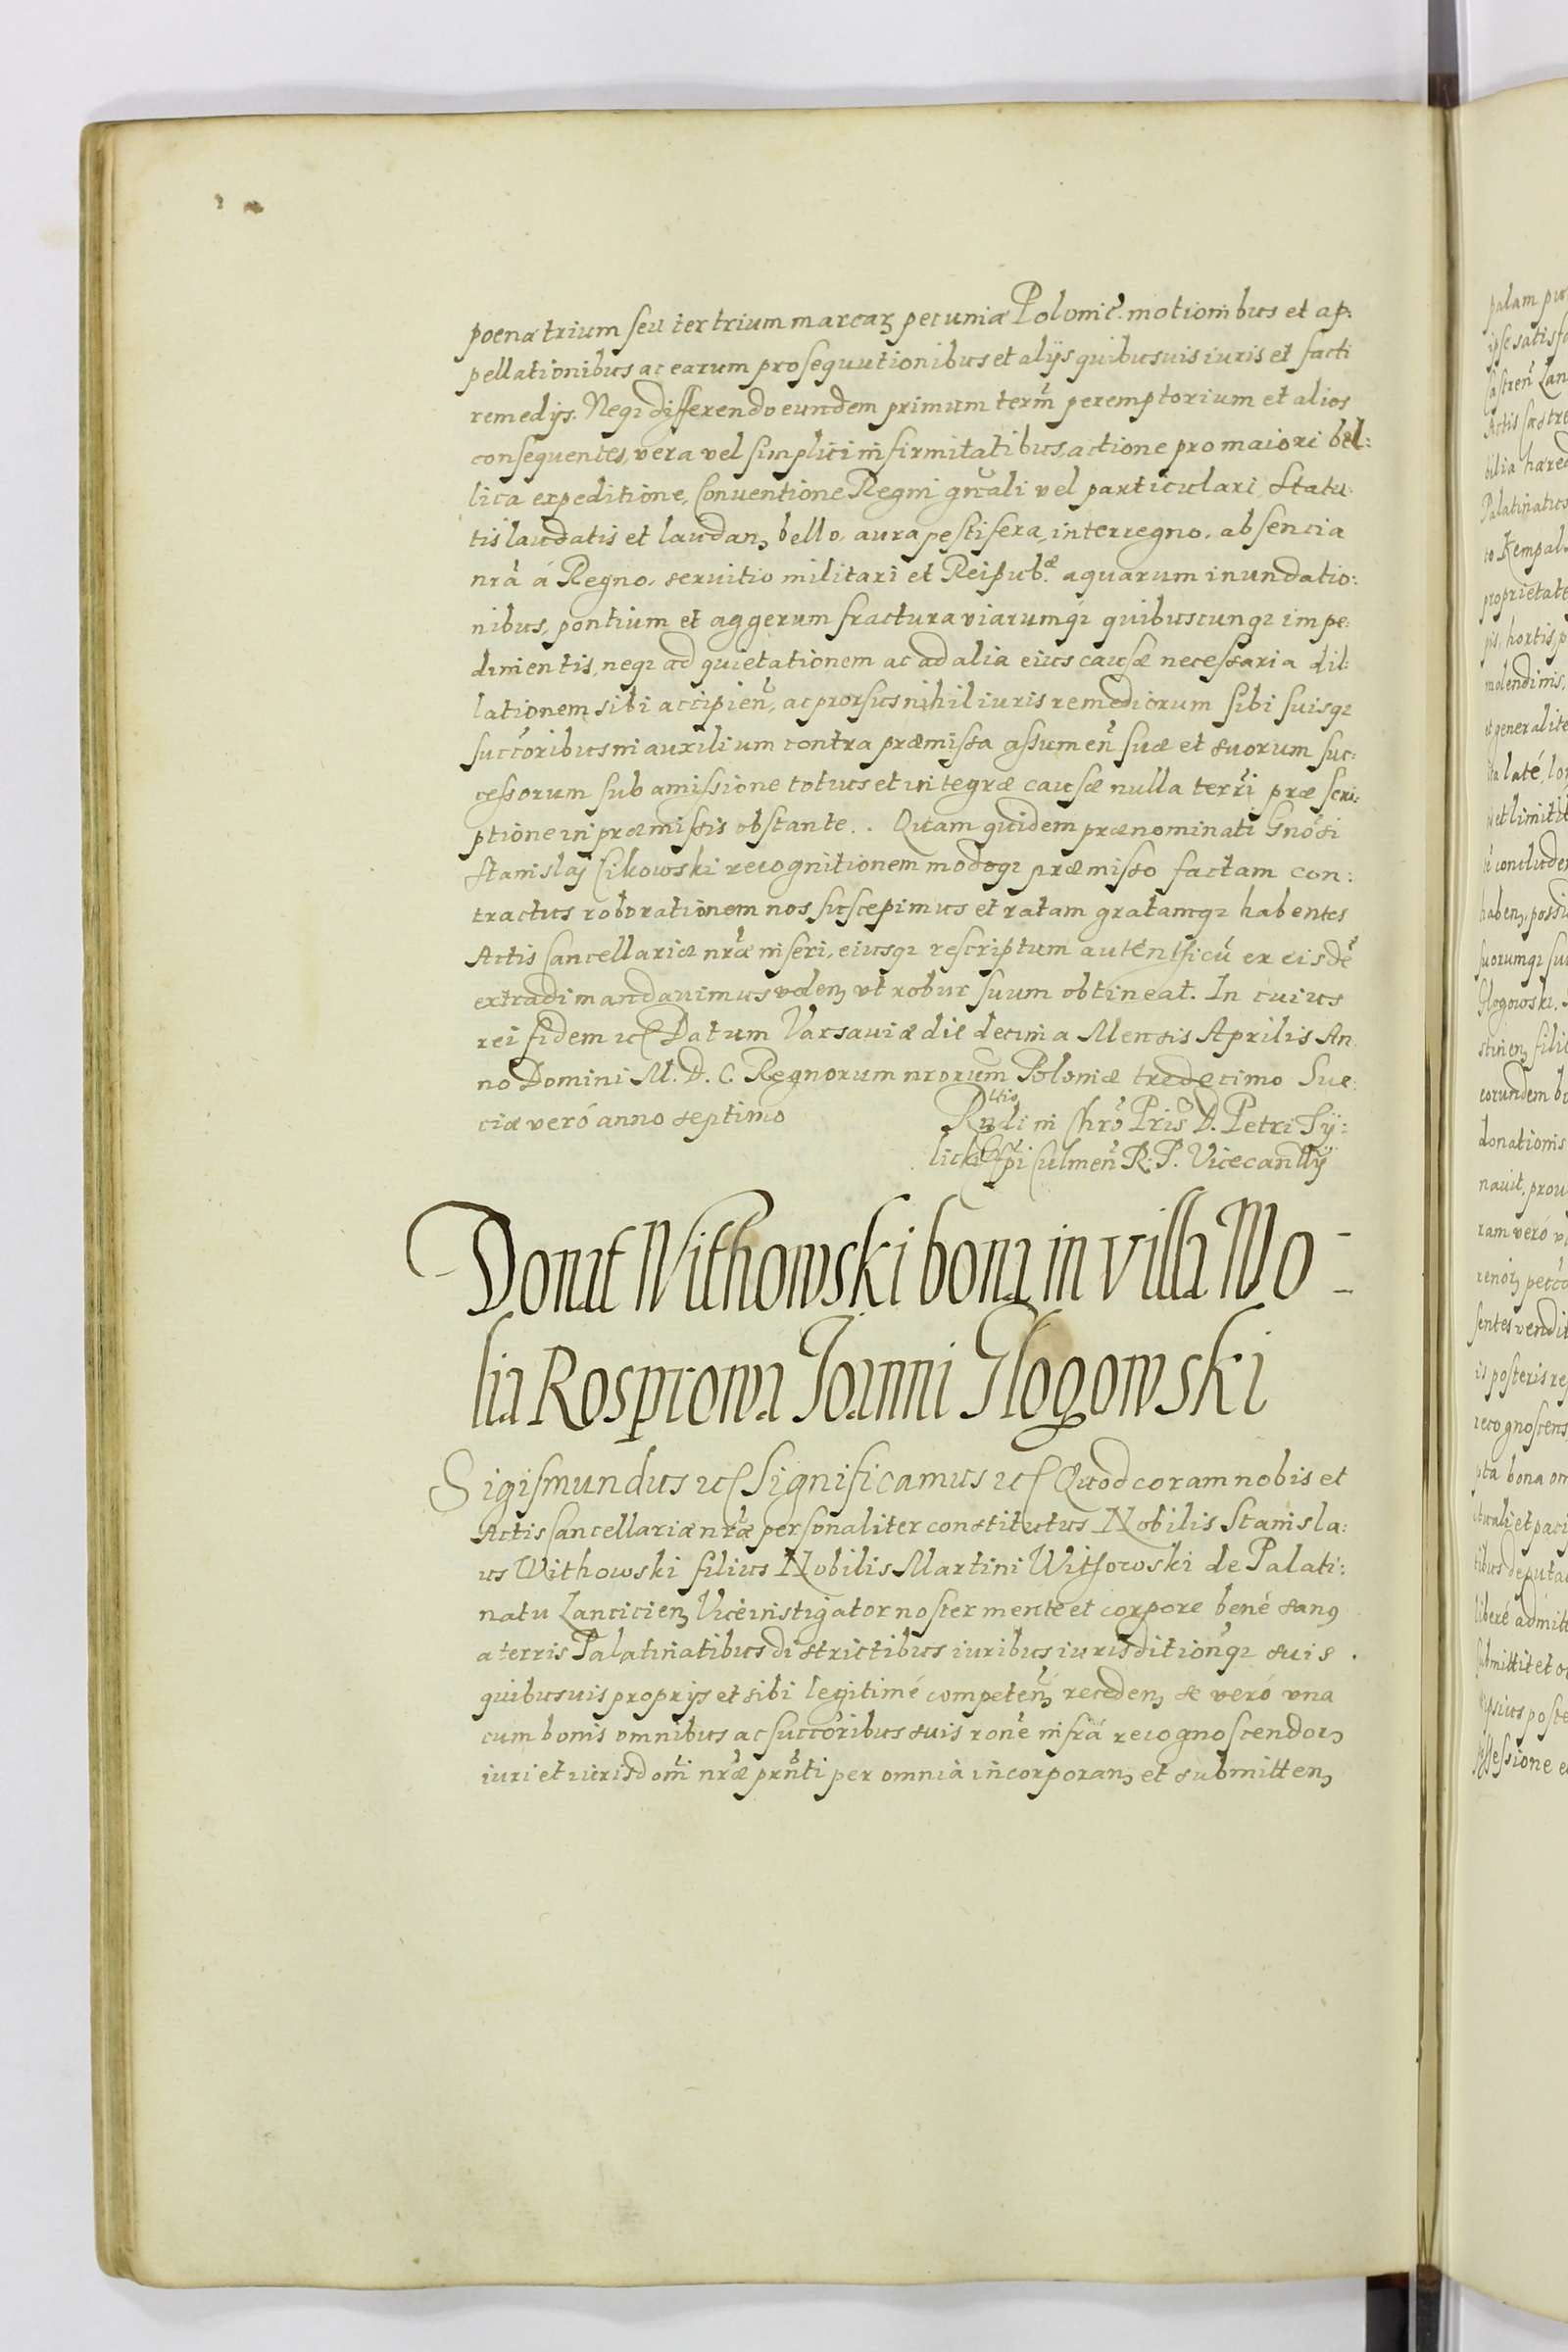 poena trium seu ter trium marcarꝫ pecuniæ Polonic̃. motionibus et ap:
pellationibus ac earum prosequutionibus et alijs quibusuis iuris et facti
remedijs. Neqꝫ differendo eundem primum term̃ peremptorium et alios
consequentes, vera vel simplici infirmitatibus, actione pro maiori bel:
lica expeditione, Conuentione Regni gn̄ali vel particulari, Statu:
tis laudatis et laudanꝫ bello, aura pestifera, interregno, absencia
nr̃a á Regno, seruitio militari et Reipub.æ aquarum inundatio:
nibus, pontium et aggerum fractura viarumqꝫ quibuscunqꝫ impe:
dimentis, neqꝫ ad quietationem ac ad alia eius causæ necessaria dil:
lationem sibi accipien̄, ac prorsus nihil iuris remediorum sibi suisqꝫ
succoribus in auxilium contra præmissa assumen̄ suæ et suorum suc:
cessorum sub amissione totius et integræ causæ nulla terr̃i præ scri:
ptione in præmissis obstante. . Quam quidem prænominati Gnosi
Stanislaj Cikowski recognitionem modoqꝫ præmisso factam con:
tractus roborationem nos suscepimus et ratam gratamqꝫ habentes
Actis Cancellariæ nr̃æ inseri, eiusqꝫ rescriptum autenthicū ex eisdē
extradi mandauimus volenꝫ vt robur suum obtineat. In cuius
rei fidem ec Datum Varsauiæ die decima Mensis Aprilis An
no Domini M. D. C. Regnorum nrorum Poloniæ tredecimo Sue:
ciæ veró anno septimo Rltisꝫ di in Chrō Pris D. Petri Tÿ:
licki Ep̄i Culmen̄ R. P. Vicecan̄llÿ
Donat Withowski bona in villa Wo-
lia Rosprowa Joanni Glogowski
Sigismundus ec Significamus ec Quod coram nobis et
Actis Cancellariæ nr̃æ personaliter constitutus Nobilis Stanisla:
us Withowski filius Nobilis Martini Withowski de Palati:
natu Lancicienꝫ Viceinstigator noster mente et corpore bené sanꝰ
a terris Palatinatibus districtibus iuribus iurisdition̄qꝫ suis .
quibusuis proprijs et sibi legitimé competen̄ꝫ recedenꝫ se veró vna
cum bonis omnibus ac succoribus suis rōne infrá recognoscendorꝫ
iuri et iurisdōni nr̃æ prn̄ti per omnia incorporanꝫ et submittenꝫ